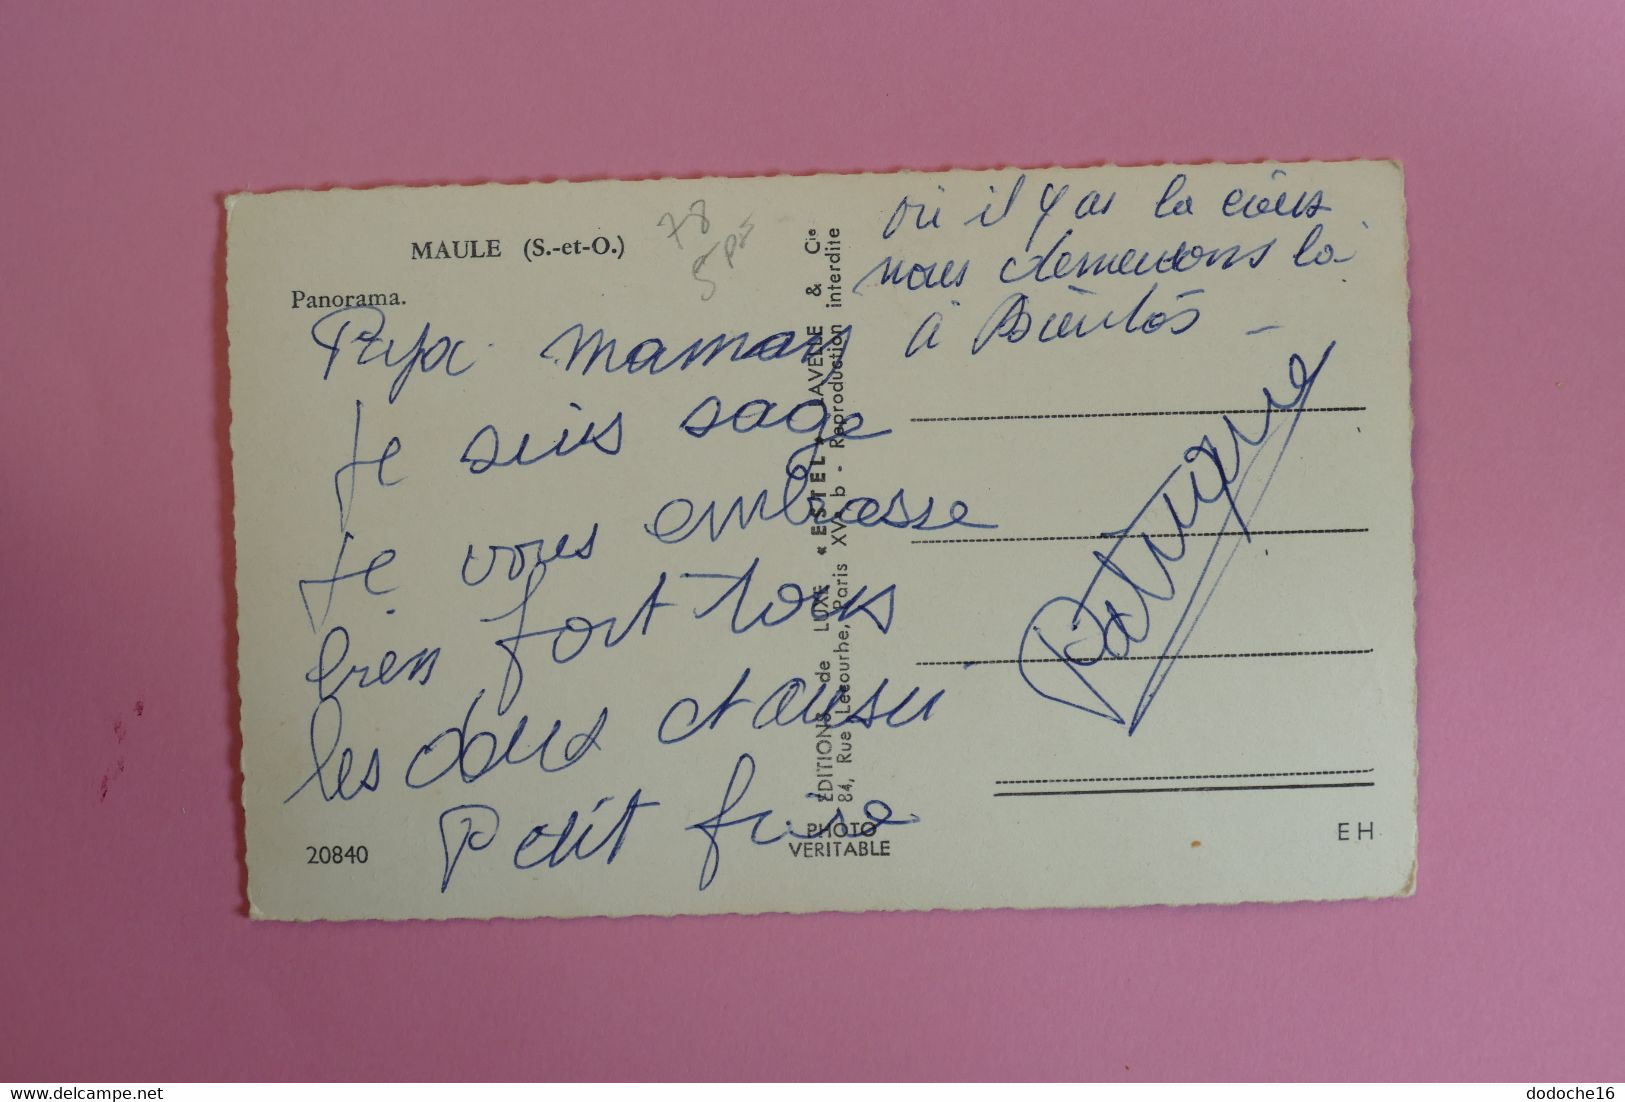 MAULE (S.-et-O.)
Panorama.
78
5 p
Papa Maman
Je suis sage
Je vous embrasse
bien fort tous
les deux et aussi
Petit frère
20840
où il y as la croix
nous demeurons là
à Bientôs -
Patrique
ÉDITIONS de LUXE « ESTEL » LAVELLE & Cie
84, Rue Lecourbe, Paris XVe b - Reproduction interdite
PHOTO
VERITABLE
EH
www.delcampe.net
dodoche16